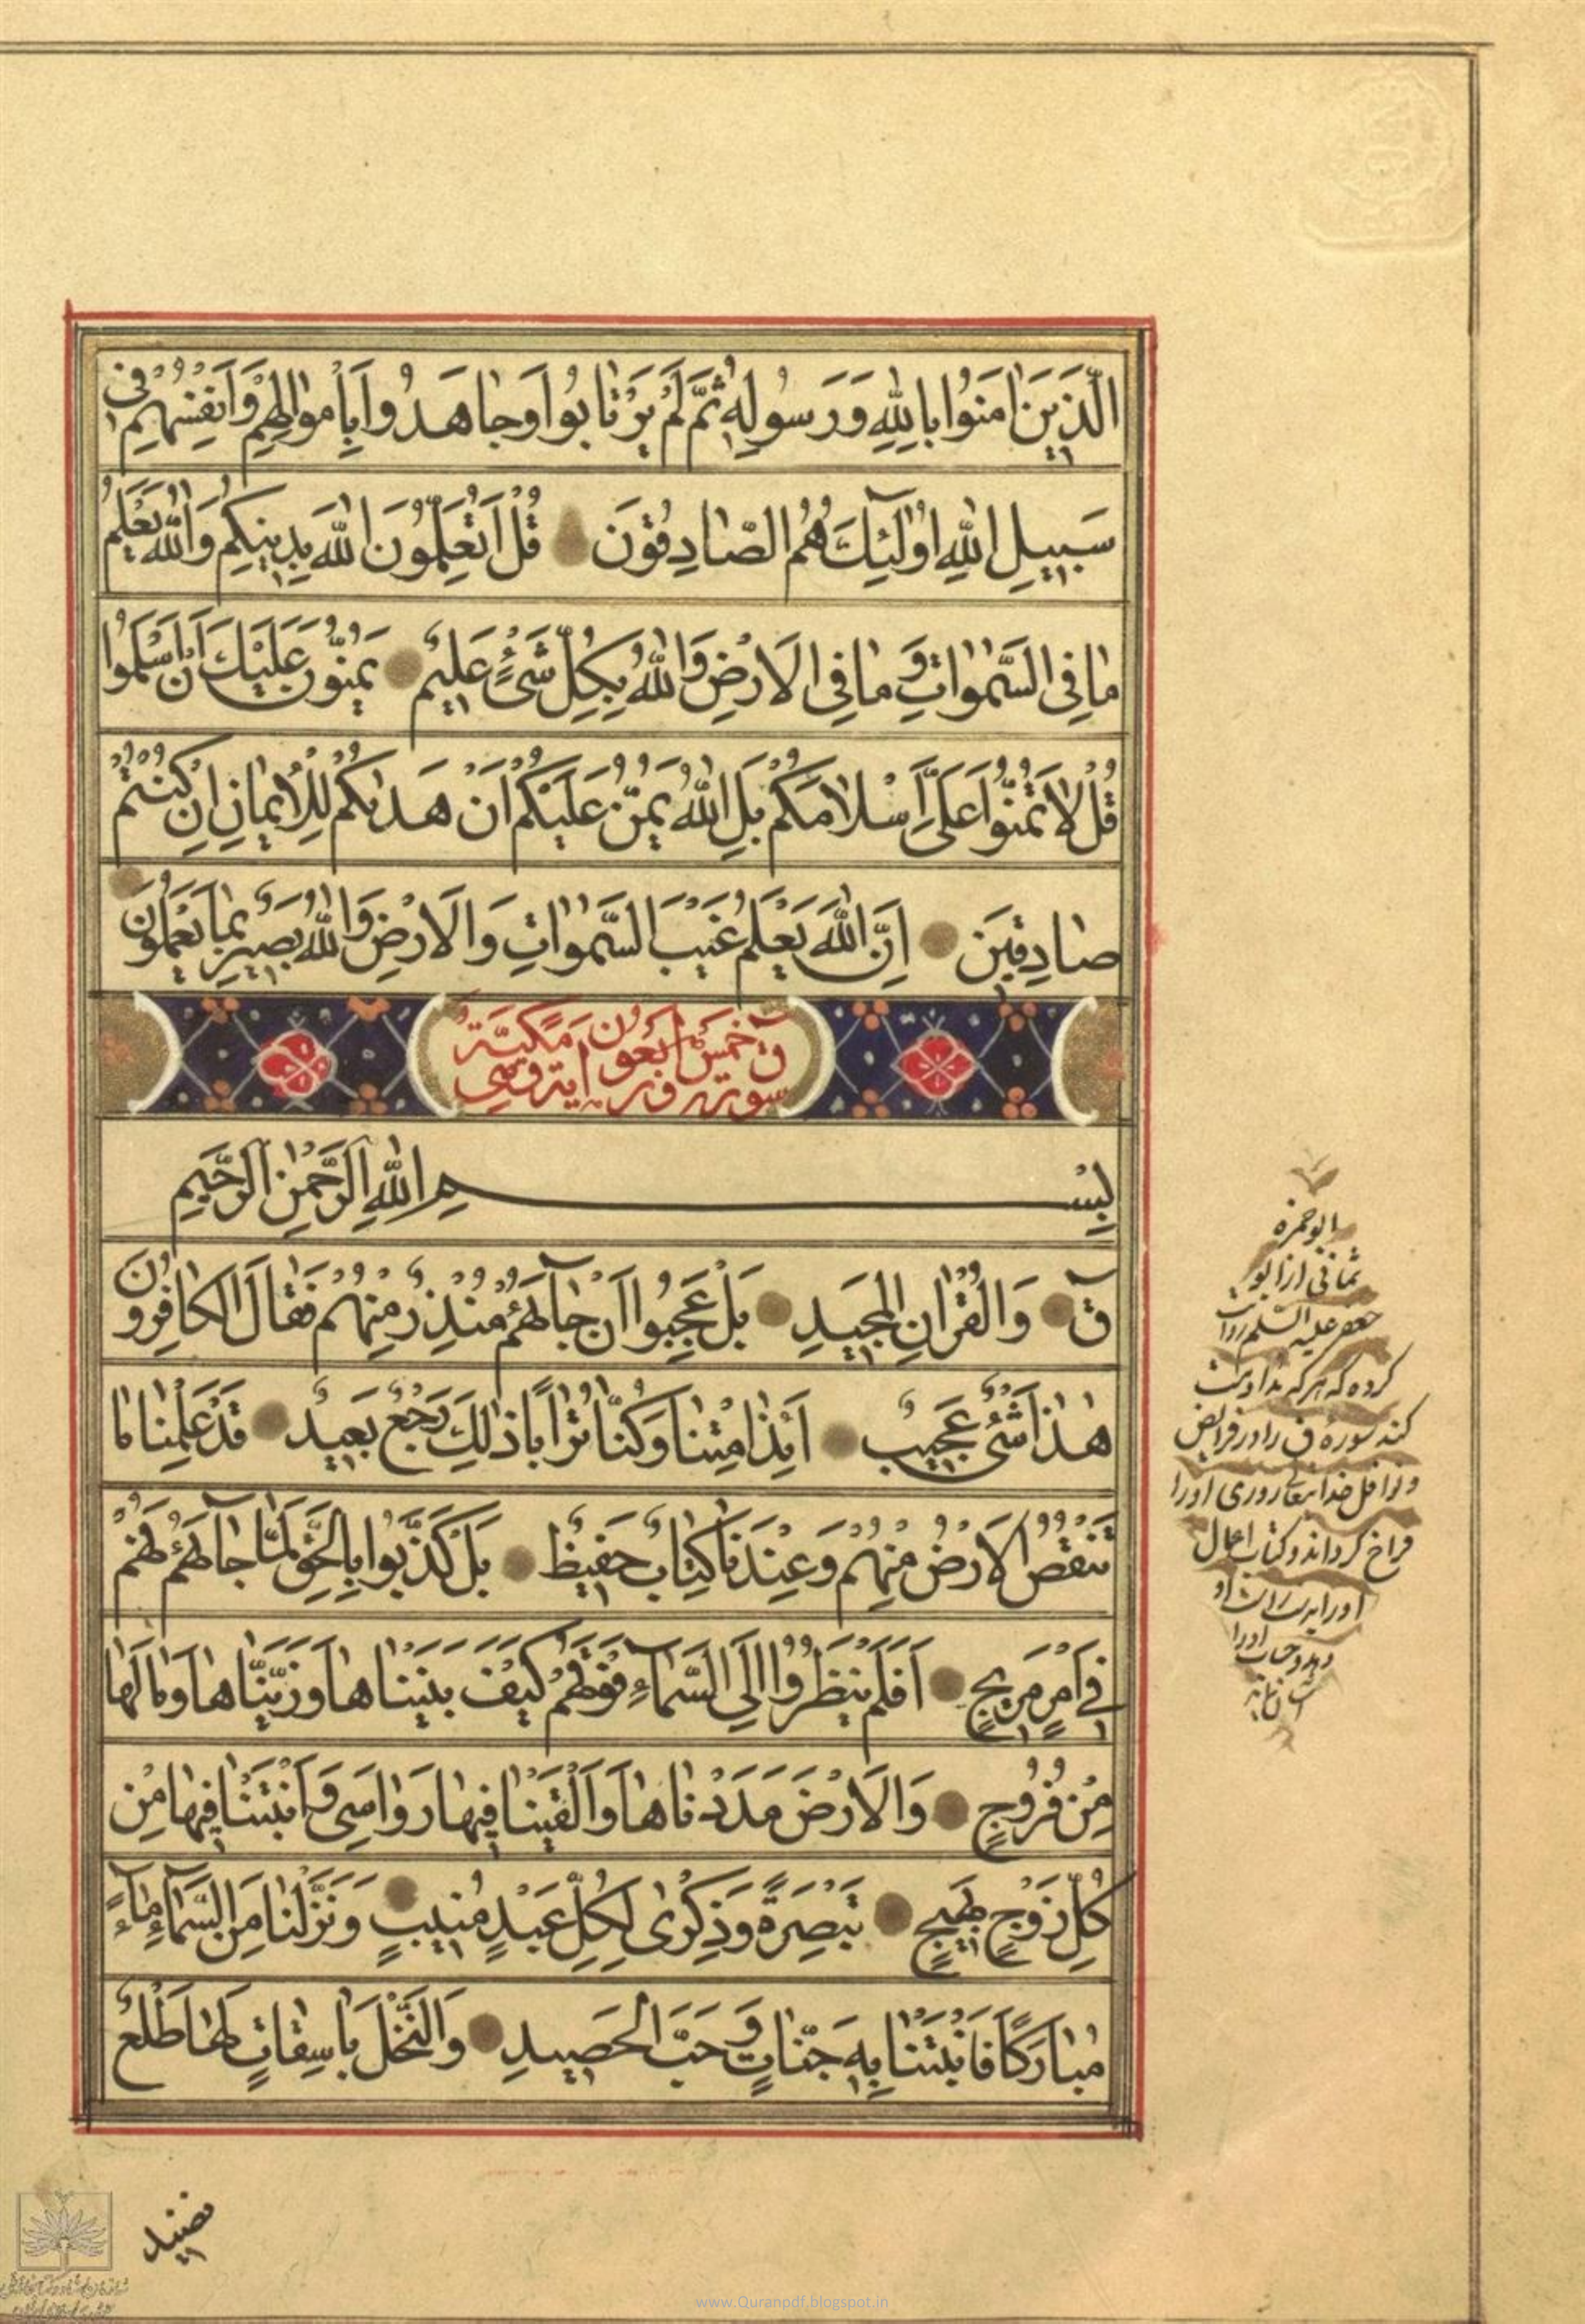 الَّذِينَ اٰمَنُوا بِاللّٰهِ وَرَسُولِهِ ثُمَّ لَمْ يَرْتٰابُوا وَجٰاهَدُوا بِاَمْوٰالِهِمْ وَاَنْفُسِهِمْ فِى
سَبِيلِ اللّٰهِ اُولٰٓئِكَ هُمُ الصّٰادِقُونَ قُلْ اَتُعَلِّمُونَ اللّٰهَ بِدِينِكُمْ وَاللّٰهُ يَعْلَمُ
مٰا فِى السَّمٰوٰاتِ وَ مٰا فِى الْاَرْضِ وَاللّٰهُ بِكُلِّ شَىْءٍ عَلِيمٌ يَمُنُّونَ عَلَيْكَ اَنْ اَسْلَمُوا
قُلْ لٰا تَمُنُّوا عَلَىَّ اِسْلٰامَكُمْ بَلِ اللّٰهُ يَمُنُّ عَلَيْكُمْ اَنْ هَدٰيكُمْ لِلْاِيمٰانِ اِنْ كُنْتُمْ
صٰادِقِينَ اِنَّ اللّٰهَ يَعْلَمُ غَيْبَ السَّمٰوٰاتِ وَالْاَرْضِ وَاللّٰهُ بَصِيرٌ بِمٰا تَعْمَلُونَ
سورة ق خمس و اربعون اية و هى مكية
بِسْمِ اللّٰهِ الرَّحْمٰنِ الرَّحِيمِ
قٓ وَالْقُرْاٰنِ الْمَجِيدِ بَلْ عَجِبُوا اَنْ جٰآءَهُمْ مُنْذِرٌ مِنْهُمْ فَقٰالَ الْكٰافِرُونَ
هٰذٰا شَىْءٌ عَجِيبٌ اَئِذٰا مِتْنٰا وَكُنّٰا تُرٰابًا ذٰلِكَ رَجْعٌ بَعِيدٌ قَدْ عَلِمْنٰا مٰا
تَنْقُصُ الْاَرْضُ مِنْهُمْ وَعِنْدَنٰا كِتٰابٌ حَفِيظٌ بَلْ كَذَّبُوا بِالْحَقِّ لَمّٰا جٰآءَهُمْ فَهُمْ
فِى اَمْرٍ مَرِيجٍ اَفَلَمْ يَنْظُرُوا اِلَى السَّمٰآءِ فَوْقَهُمْ كَيْفَ بَنَيْنٰاهٰا وَزَيَّنّٰاهٰا وَمٰا لَهٰا
مِنْ فُرُوجٍ وَالْاَرْضَ مَدَدْنٰاهٰا وَاَلْقَيْنٰا فِيهٰا رَوٰاسِىَ وَاَنْبَتْنٰا فِيهٰا مِنْ
كُلِّ زَوْجٍ بَهِيجٍ تَبْصِرَةً وَذِكْرٰى لِكُلِّ عَبْدٍ مُنِيبٍ وَنَزَّلْنٰا مِنَ السَّمٰآءِ مٰآءً
مُبٰارَكًا فَاَنْبَتْنٰا بِهِ جَنّٰاتٍ وَ حَبَّ الْحَصِيدِ وَالنَّخْلَ بٰاسِقٰاتٍ لَهٰا طَلْعٌ
نضيد
ابو حمزه
ثمالى از ابو
جعفر عليه السلم روايت
كرده كه هر كه مداومت
كند سوره ق را در فرايض
و نوافل خدايتعالى روزى او را
فراخ گرداند و كتاب اعمال
او را بدست راست او
دهد و حساب او را
www.Quranpdf.blogspot.in